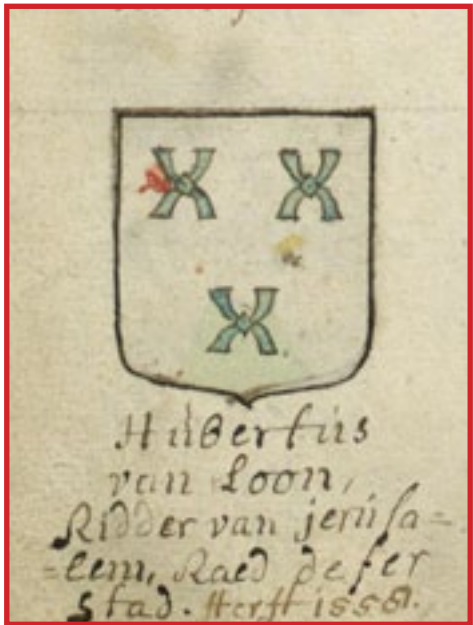 Hubertus
van Loon,
Ridder van jerusa=
=lem, Raed deser
stad. Sterft 1558.